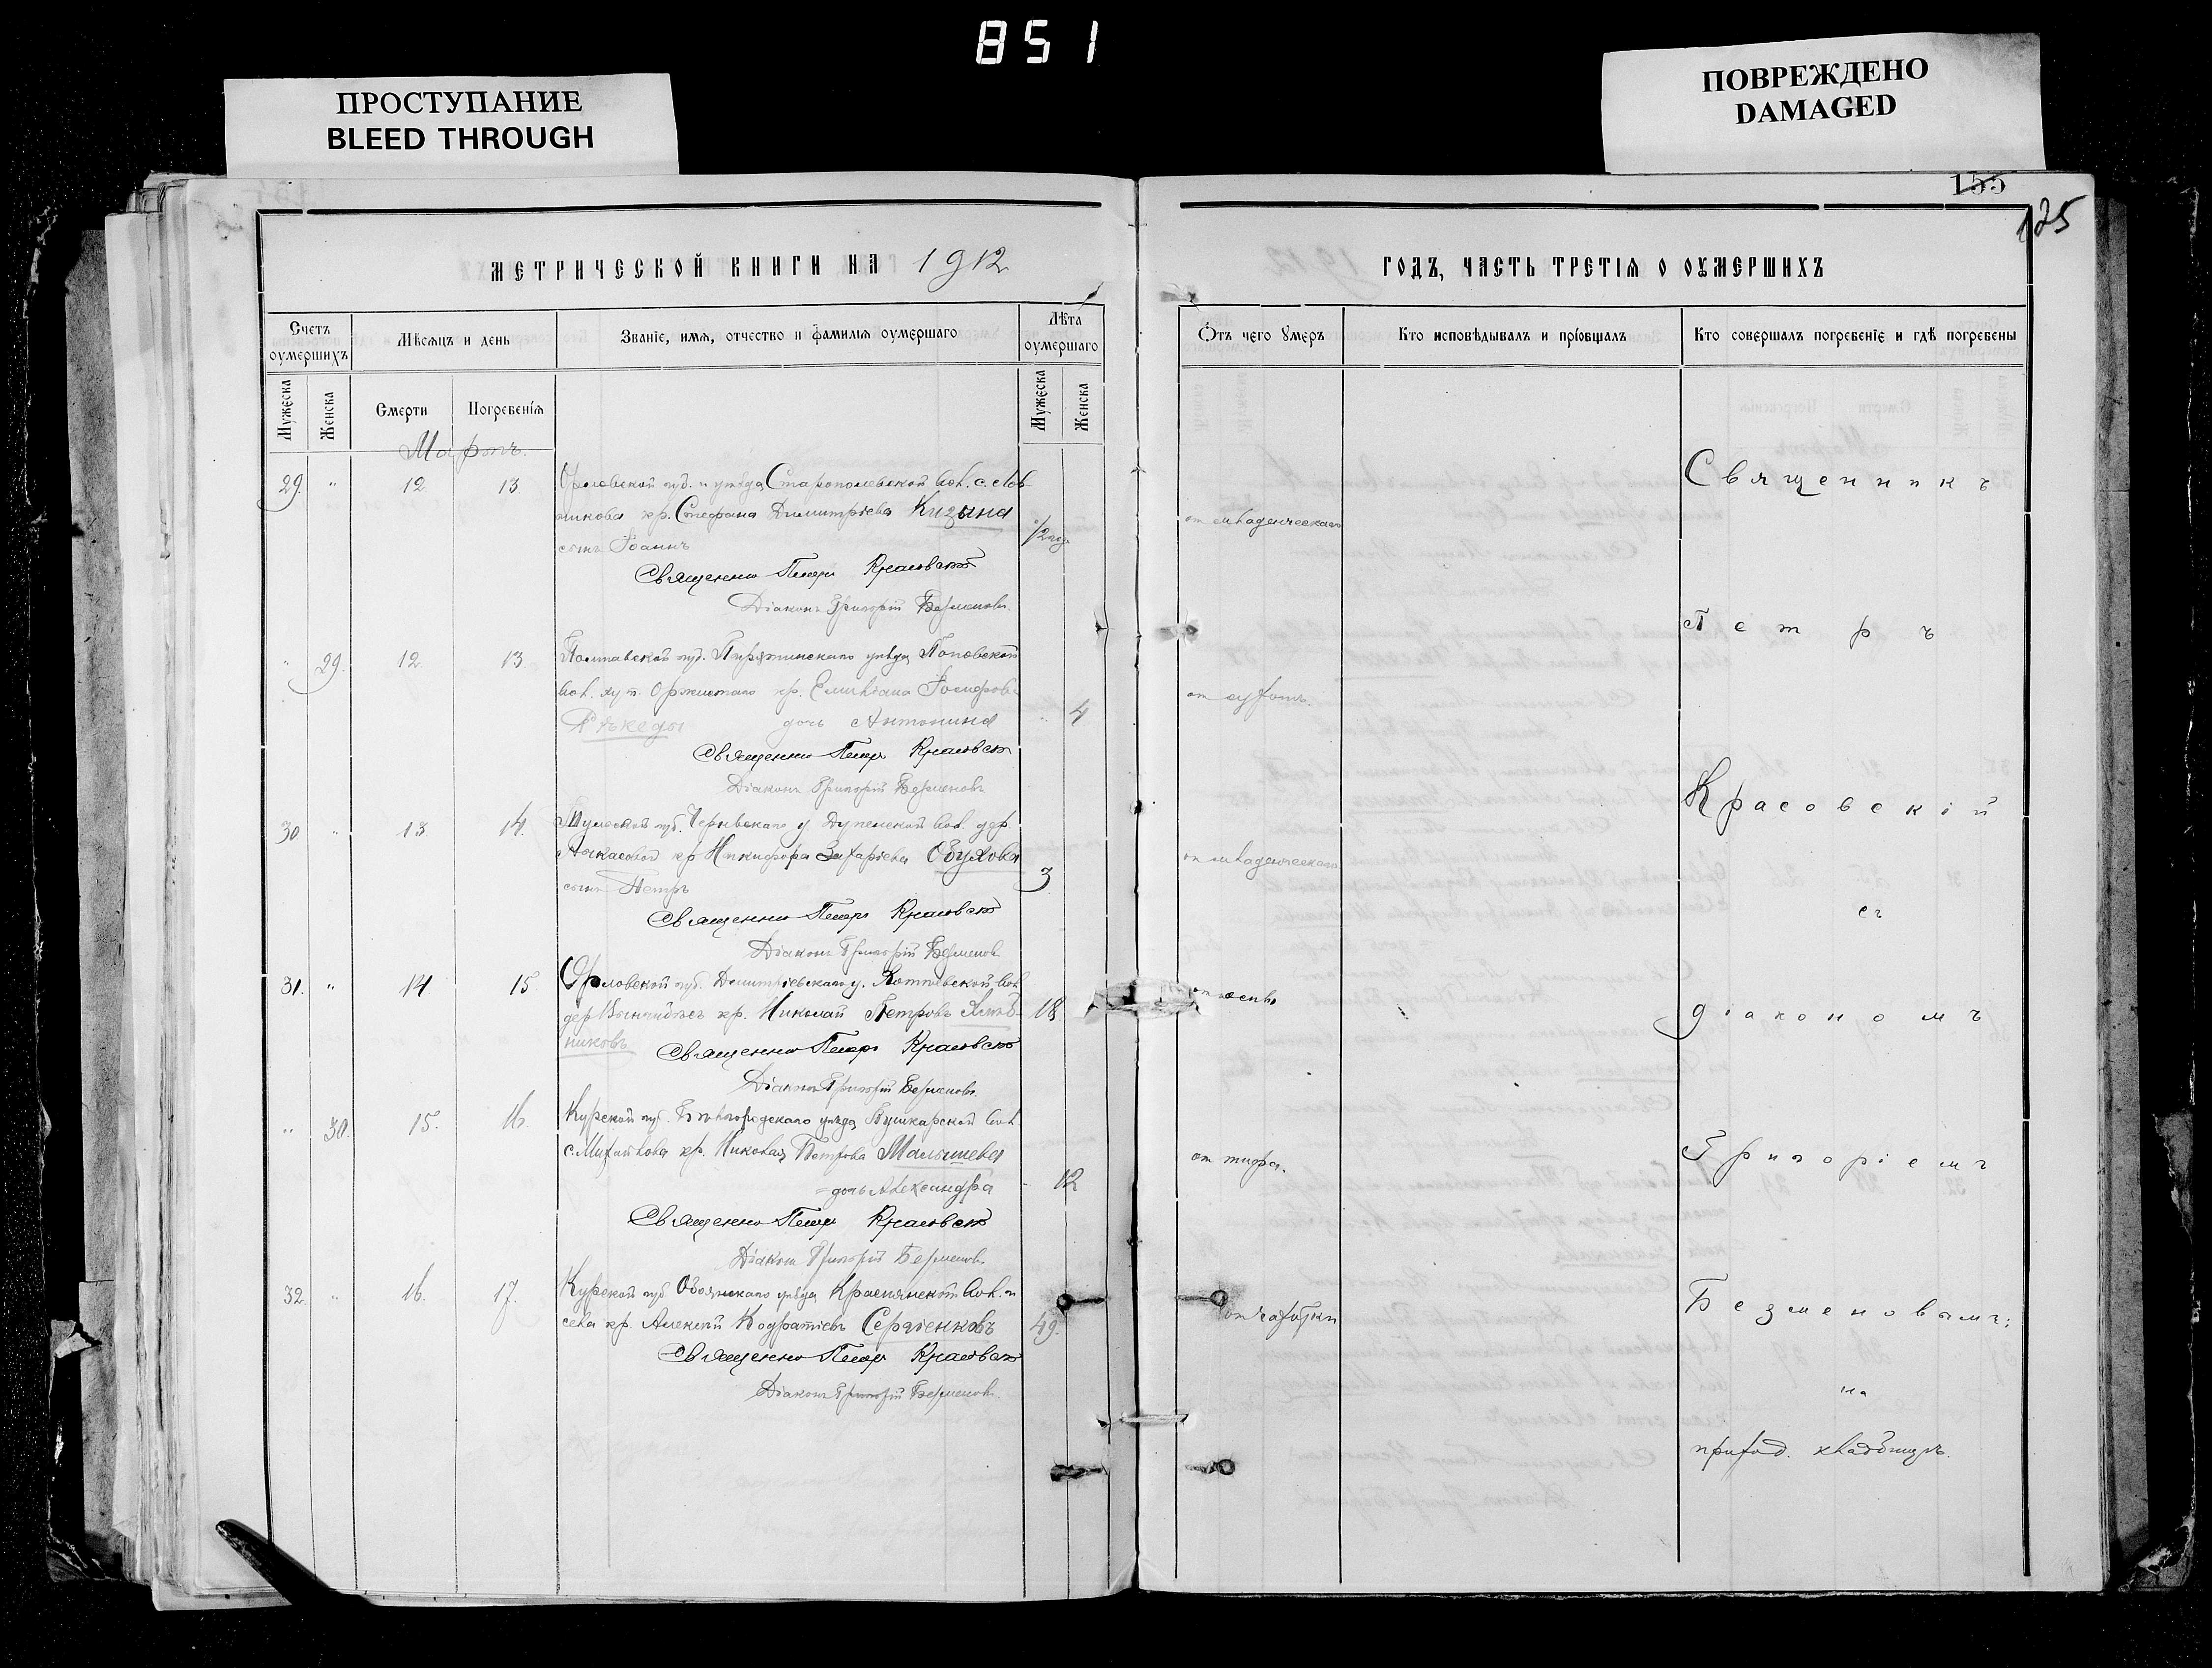 851
ПРОСТУПАНИЕ
BLEED THROUGH
ПОВРЕЖДЕНО
DAMAGED
155
125
МЕТРИЧЕСКОЙ КНИГИ НА 1912
ГОДЪ, ЧАСТЬ ТРЕТІЯ О ОУМЕРШИХЪ
Счетъ оумершихъ
Мѣсяцъ и день
Званіе, имя, отчество и фамилія оумершаго
Лѣта оумершаго
Отъ чего умеръ
Кто исповѣдывалъ и пріобщалъ
Кто совершалъ погребеніе и гдѣ погребены
Мужеска
Женска
Смерти
Погребенія
Мужеска
Женска
Мартъ.
29. " 12 13 Орловской губ. и уѣзда, Старопольской вол. с.
кр. Стефана Димитріева Кизина
сынъ Іоаннъ
1/2 года
от младенческаго
Священникъ Петръ Красовскій
Діаконъ Григорій Безменовъ
" 29. 12 13 Полтавской губ. Пирятинскаго уѣзда, Поповской
вол. хут. Оржистаго кр. Емиліана Іосифова
дочь Антонина
" 4
Священникъ Петръ Красовскій
Діаконъ Григорій Безменовъ
30 " 13 14. Тульской губ. Чернскаго у. вол. дер.
кр. Никифора Захаріева Обухова
сынъ Петръ
3
от младенческаго
Священникъ Петръ Красовскій
Діаконъ Григорій Безменовъ
31. " 14 15. Орловской губ. Димитріевскаго у. вол.
дер. кр. Николай Петровъ
18.
Священникъ Петръ Красовскій
Діаконъ Григорій Безменовъ
" 30. 15. 16. Курской губ. Бѣлгородскаго уѣзда Пушкарской вол.
с. кр. Николая Петрова Малышева
дочь Александра
12
от тифа.
Священникъ Петръ Красовскій
Діаконъ Григорій Безменовъ
32. " 16. 17. Курской губ. Обоянскаго уѣзда вол. и
села кр. Алексѣй Кодратіевъ Сергіенковъ
49.
от чахотки
Священникъ Петръ Красовскій
Діаконъ Григорій Безменовъ
Священникъ
Петръ
Красовскій
съ
діакономъ
Григоріемъ
Безменовымъ:
на
приход. кладбищѣ.